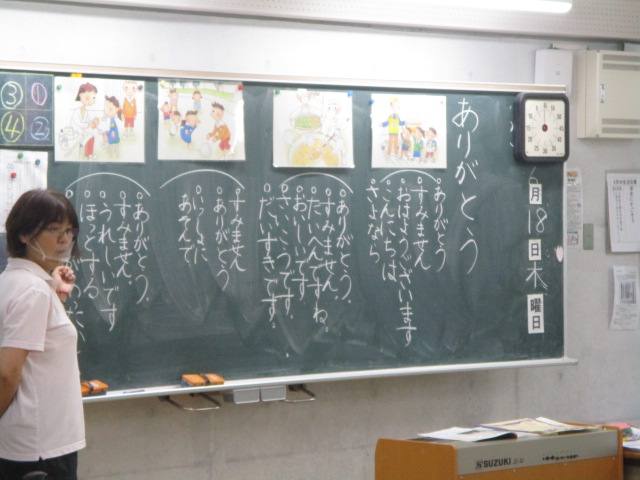 月18日木曜日
ありがとう
ありがとう
すみません
おはようございます
こんにちは
さよなら
ありがとう。
すみません。
たいへんですね。
おいしいです
さいこうです。
だいすきです。
すみません
ありがとう
いっしょに
あそんで
ありがとう。
すみません。
うれしいです
ほっとする
③①
④②
SUZUKI